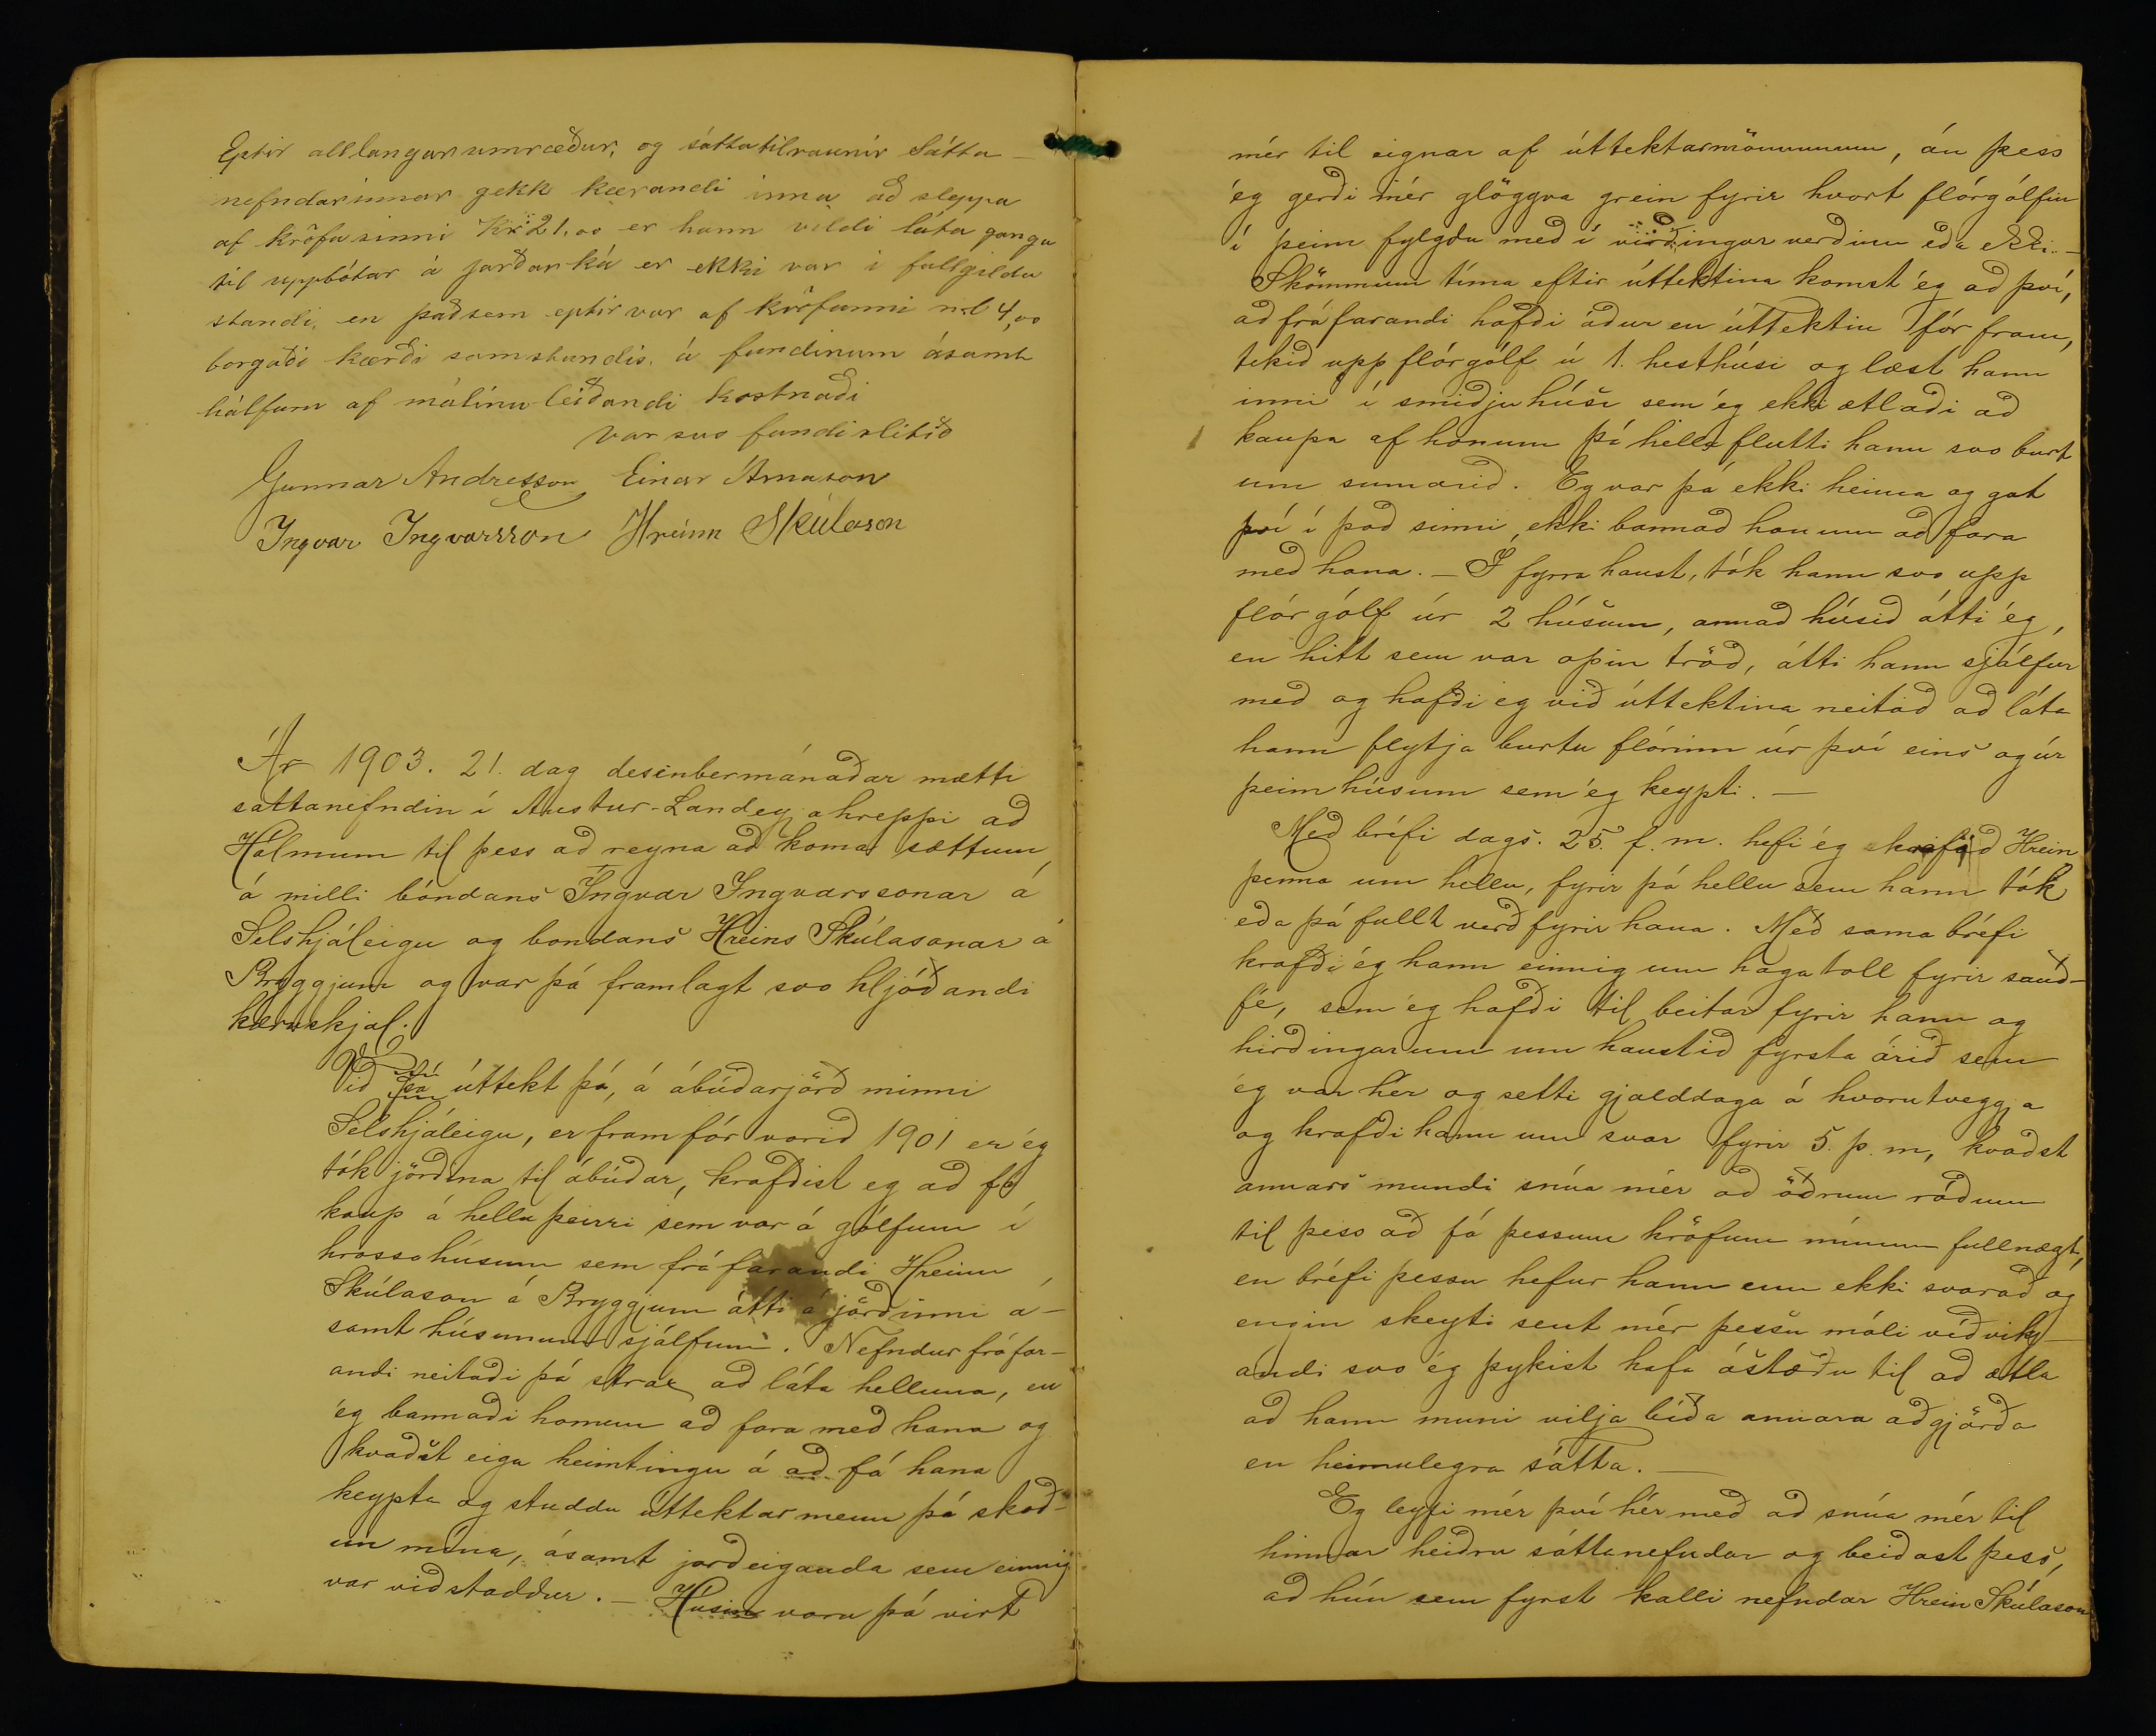 Eptir alllangar umræður, og sáttatilraunir Sátta-
nefndarinnar gekk kærandi inná að sleppa
af kröfu sinni Kr 21,00 er hann vildi láta ganga
til uppbótar á jarðarká er ekki var i fullgildu
standi, en það sem eptir var af kröfunni n.l 4,00
borgaði kærði samstundis á fundinum ásamt
hálfum af málinu leiðandi kostnaði
var svo fundi slitið
Gunnar Andresson Einar Arnason
Ingvar Ingvarsson Hreinn Skúlason
Ár 1903. 21. dag desinbermánaðar mætti
sáttanefndin í Austur-Landeyjahreppi að
Hólmum til þess að reyna að koma sættum
á milli bóndans Ingvar Ingvarssonar á
Selshjáleigu og bondans Hreins Skúlasonar á
Bryggjum og var þá framlagt svo hljóðandi
kæruskjal.
Við úttekt þá, á ábúðarjörð minni
Selshjáleigu, er fram fór vorið 1901 er ég
tók jörðina til ábúðar, krafðist eg að fá
kaup á hellu þeirri sem var á gólfum í
hrossahúsum sem fráfarandi Hreinn
Skúlason á Bryggjum átti á jörðinni á-
samt húsunum sjálfum. Nefndur fráfar-
andi neitaði þá strax að láta helluna, en
ég bannaði honum að fara með hana og
kvaðst eiga heimtingu á að fá hana
keypta og studdu úttektarmenn þá skoð-
un mína, ásamt jarðeiganda sem einnig
var viðstaddur. - Húsin voru þá virt
mér til eignar af úttektarmönnunum, án þess
ég gerði mér glöggva grein fyrir hvort flórgólfin
í þeim fylgdu með í virðingarverðinu eða ekki. -
Skömmum tíma eftir úttektina komst ég að því,
að fráfarandi hafði áður en úttektin fór fram,
tekið upp flórgólf ú 1. hesthúsi og læst hann
inni í smiðjuhúsi sem ég ekki ætlaði að
kaupa af honum þá hellu flutti hann svo burt
um sumarið. Eg var þá ekki heima og gat
því í það sinni, ekki bannað honum að fara
með hana. - Í fyrra haust, tók hann svo upp
flórgólf úr 2 húsum, annað húsið átti ég,
en hitt sem var opin tröð, átti hann sjálfur
með og hafði eg við úttektina neitað að láta
hann flytja burtu flórinn úr því eins og úr
þeim húsum sem ég keypti. -
Með bréfi dags. 25. f. m. hefi ég krafið Hrein
þenna um hellu, fyrir þá hellu sem hann tók
eða þá fullt verð fyrir hana. Með sama bréfi
krafði ég hann einnig um hagatoll fyrir sauð-
fé, sem ég hafði til beitar fyrir hann og
hirðingar um haustið fyrsta árið sem
ég var hér og setti gjalddaga á hvorutveggja
og krafði hann um svar fyrir 5. þ. m, kvaðst
annars mundi snúa mér að öðrum ráðum
til þess að fá þessum kröfum mínum fullnægt,
en bréfi þessu hefur hann enn ekki svarað og
engin skeyti sent mér þessu máli viðvíkj-
andi svo ég þykist hafa ástæðu til að ætla
að hann muni vilja bíða annara aðgjörða
en heimulegra sátta. -
Eg leyfi mér því hér með að snúa mér til
hinnar heiðru sáttanefndar og beiðast þess,
að hún sem fyrst kalli nefndan Hrein Skúlason